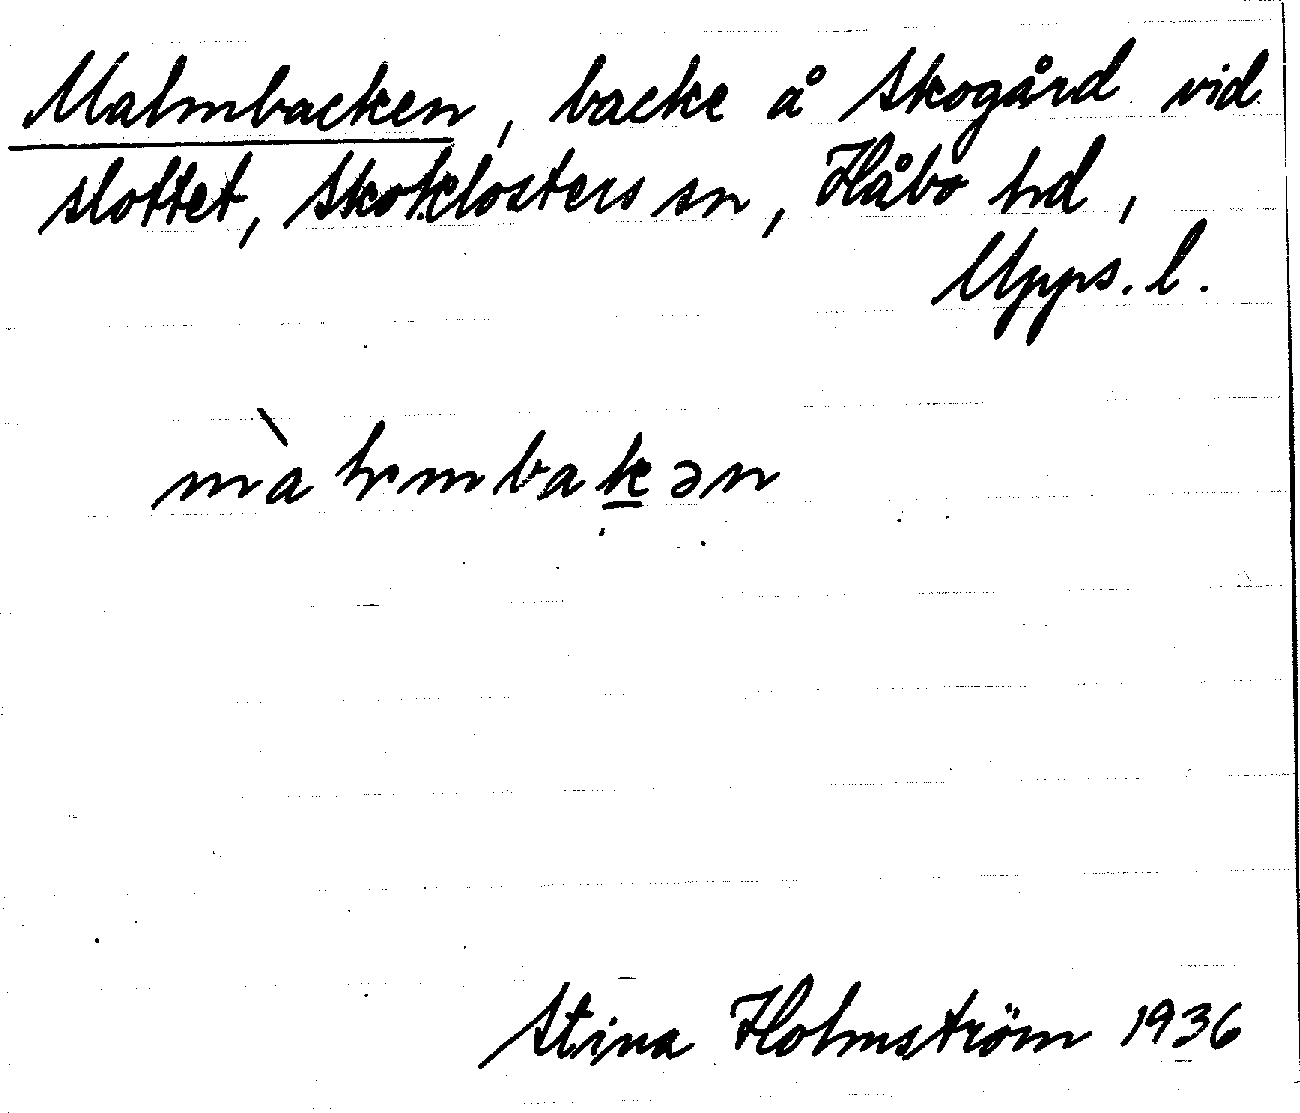 Malmbacken, backe å Skogård vid
slottet, Skoklosters sn, Håbo hd,
Upps. l.
màlmbakən
Stina Holmström 1936